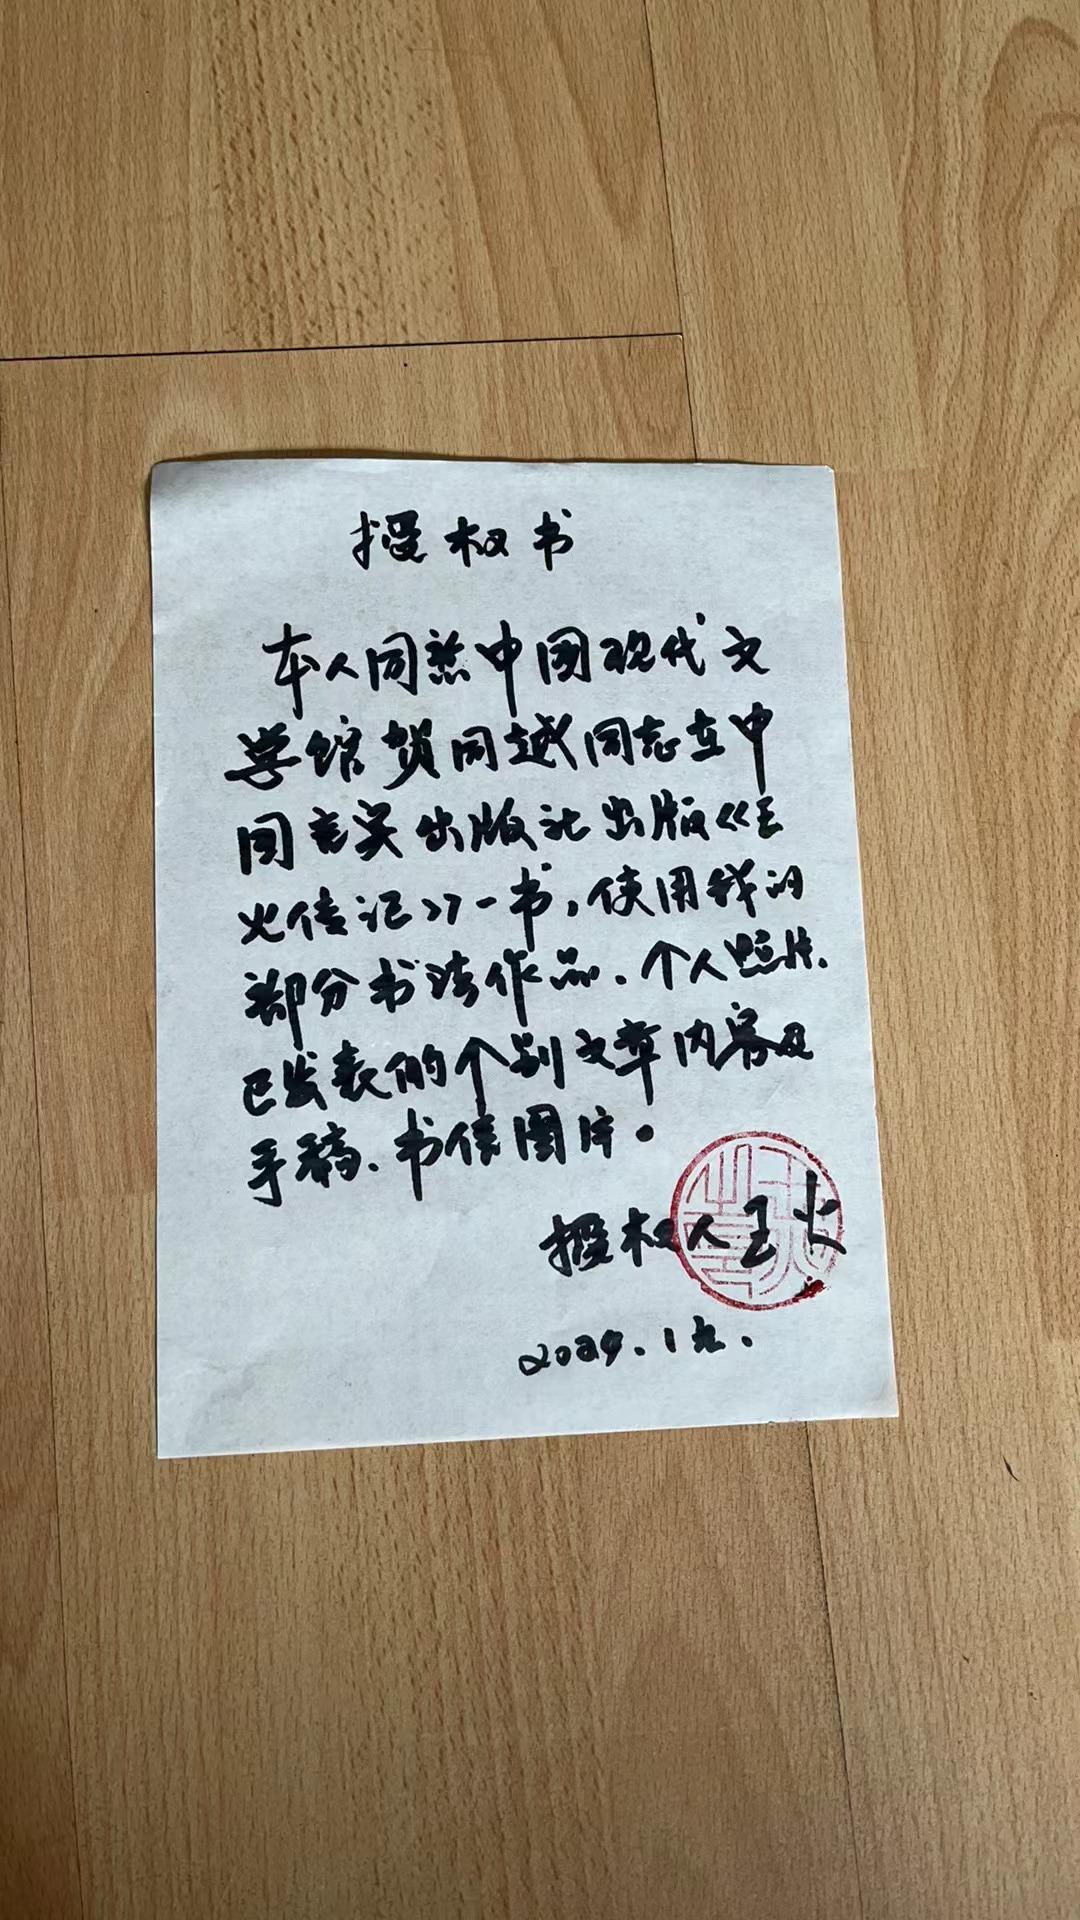 授权书
本人同意中国现代文
学馆贺同越同志在中
国言实出版社出版《王
火传记》一书，使用我的
部分书法作品、个人照片、
已发表的个别文章内容及
手稿、书信图片。
授权人王火
2024.1元.